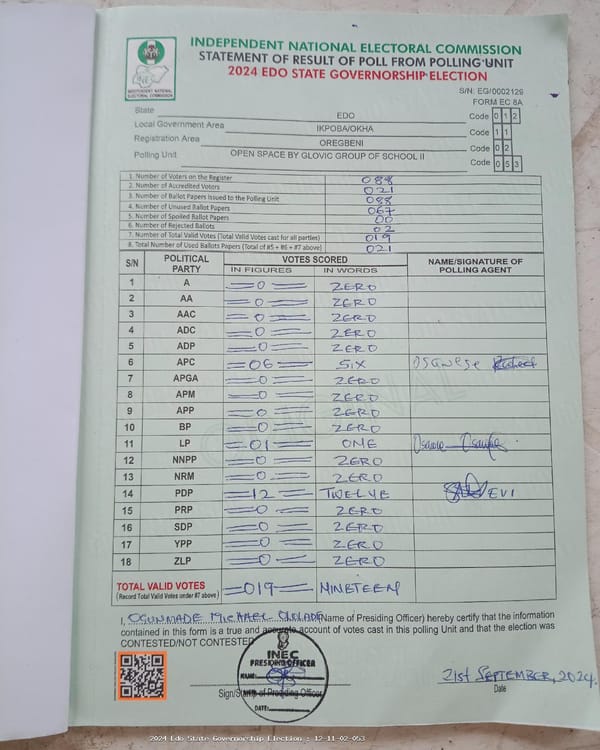 INDEPENDENT NATIONAL ELECTORAL COMMISSION
STATEMENT OF RESULT OF POLL FROM POLLING UNIT
2024 EDO STATE GOVERNORSHIP ELECTION
INDEPENDENT NATIONAL ELECTORAL COMMISSION
S/N: EG/0002129
FORM EC 8A
State EDO Code 0 1 2
Local Government Area IKPOBA/OKHA Code 1 1
Registration Area OREGBENI Code 0 2
Polling Unit OPEN SPACE BY GLOVIC GROUP OF SCHOOL II Code 0 5 3
1. Number of Voters on the Register 088
2. Number of Accredited Voters 021
3. Number of Ballot Papers Issued to the Polling Unit 088
4. Number of Unused Ballot Papers 067
5. Number of Spoiled Ballot Papers 00
6. Number of Rejected Ballots 02
7. Number of Total Valid Votes (Total Valid Votes cast for all parties) 019
8. Total Number of Used Ballots Papers (Total of #5 + #6 + #7 above) 021
S/N POLITICAL PARTY VOTES SCORED NAME/SIGNATURE OF POLLING AGENT
IN FIGURES IN WORDS
1 A 0 ZERO
2 AA 0 ZERO
3 AAC 0 ZERO
4 ADC 0 ZERO
5 ADP 0 ZERO
6 APC 06 SIX
7 APGA 0 ZERO
8 APM 0 ZERO
9 APP 0 ZERO
10 BP 0 ZERO
11 LP 01 ONE
12 NNPP 0 ZERO
13 NRM 0 ZERO
14 PDP 12 TWELVE EVI
15 PRP 0 ZERO
16 SDP 0 ZERO
17 YPP 0 ZERO
18 ZLP 0 ZERO
TOTAL VALID VOTES 019 NINETEEN
(Record Total Valid Votes under #7 above)
I, OGUNMADE MICHAEL (Name of Presiding Officer) hereby certify that the information
contained in this form is a true and accurate account of votes cast in this polling Unit and that the election was
CONTESTED/NOT CONTESTED
INEC
PRESIDING OFFICER
NAME:
Sign/Stamp of Presiding Officer
DATE:
21st SEPTEMBER, 2024.
Date
2024 Edo State Governorship Election : 12-11-02-053